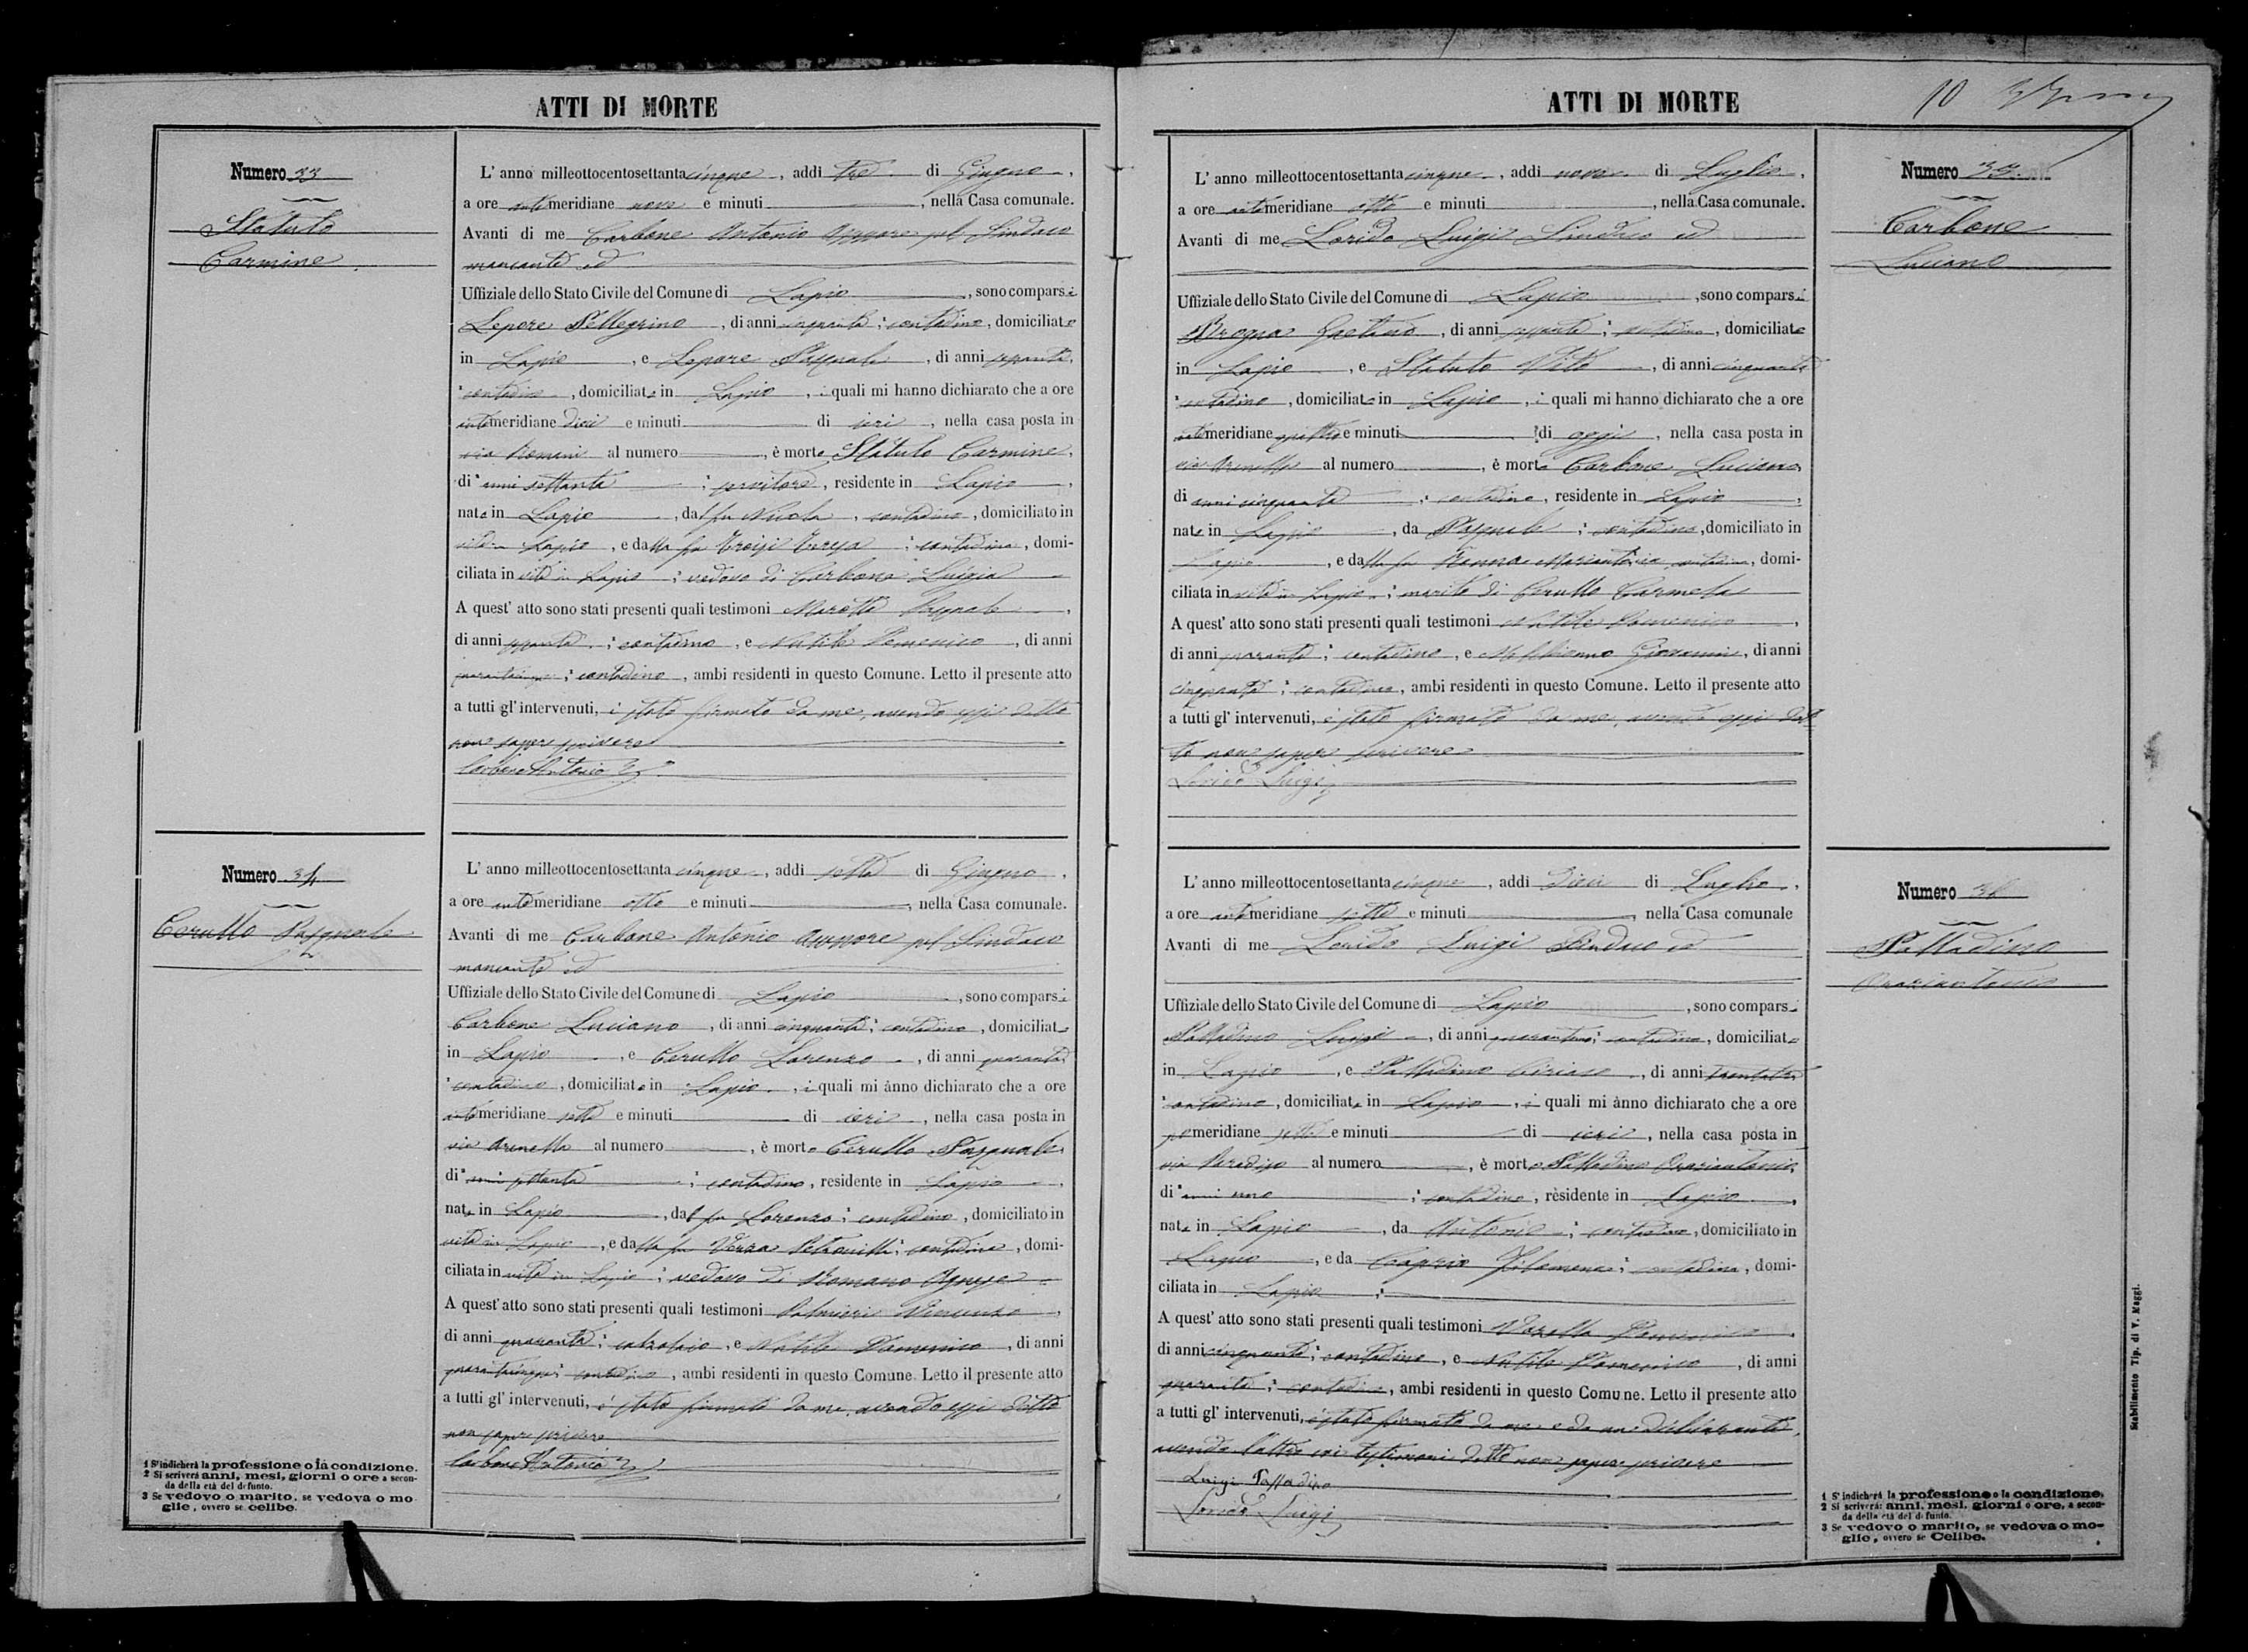 ATTI DI MORTE
Numero 33
Statuto
Carmine
L' anno milleottocentosettanta cinque, addì tre di Giugno,
a ore antimeridiane nove e minuti , nella Casa comunale.
Avanti di me Carbone Antonio Assessore pel Sindaco
mancante ed
Uffiziale dello Stato Civile del Comune di Lapio, sono comparsi
Lepore Pellegrino, di anni cinquanta; contadino, domiciliato
in Lapio, e Lepore Pasquale, di anni sessanta,
contadino, domiciliato in Lapio, i quali mi hanno dichiarato che a ore
antimeridiane dieci e minuti di ieri, nella casa posta in
via Romani al numero , è morto Statuto Carmine,
di anni settanta; servitore, residente in Lapio,
nato in Lapio, dal fu Nicola, contadino, domiciliato in
vita in Lapio, e dalla fu Troisi Teresa; contadina, domi-
ciliata in vita in Lapio; vedovo di Carbone Luigia
A quest' atto sono stati presenti quali testimoni Pasquale,
di anni sessanta; contadino, e Nutile Domenico, di anni
quarantacinque; contadino, ambi residenti in questo Comune. Letto il presente atto
a tutti gl' intervenuti, è stato firmato da me, avendo essi detto
non sapere scrivere
Carbone Antonio
Numero 34
Cerullo Pasquale
L' anno milleottocentosettanta cinque, addì sette di Giugno,
a ore antimeridiane otto e minuti , nella Casa comunale.
Avanti di me Carbone Antonio Assessore pel Sindaco
mancante ed
Uffiziale dello Stato Civile del Comune di Lapio, sono comparsi
Carbone Luciano, di anni cinquanta; contadino, domiciliato
in Lapio, e Cerullo Lorenzo, di anni quaranta,
contadino, domiciliato in Lapio, i quali mi ànno dichiarato che a ore
antimeridiane sette e minuti di ieri, nella casa posta in
via Arunella al numero , è morto Cerullo Pasquale,
di anni settanta; contadino, residente in Lapio,
nato in Lapio, dal fu Lorenzo; contadino, domiciliato in
vita in Lapio, e dalla fu Petronilla; contadina, domi-
ciliata in vita in Lapio; vedovo di Romano Agnese
A quest' atto sono stati presenti quali testimoni Palmieri Vincenzo,
di anni quaranta; calzolaio, e Nutile Domenico, di anni
quarantacinque; contadino, ambi residenti in questo Comune. Letto il presente atto
a tutti gl' intervenuti, è stato firmato da me, avendo essi detto
non sapere scrivere
Carbone Antonio
1 S' indicherà la professione o la condizione.
2 Si scriverà anni, mesi, giorni o ore a secon-
da della età del defunto.
3 Se vedovo o marito, se vedova o mo-
glie, ovvero se celibe.
ATTI DI MORTE
10
L' anno milleottocentosettanta cinque, addì nove di Luglio,
a ore antimeridiane otto e minuti , nella Casa comunale.
Avanti di me Lorido Luigi Sindaco ed
Uffiziale dello Stato Civile del Comune di Lapio, sono comparsi
Brogna Gaetano, di anni sessanta; contadino, domiciliato
in Lapio, e Statuto Vito, di anni cinquanta
contadino, domiciliato in Lapio, i quali mi hanno dichiarato che a ore
antimeridiane quattro e minuti di oggi, nella casa posta in
via Arunella al numero , è morto Carbone Luciano
di anni cinquanta; contadino, residente in Lapio,
nato in Lapio, da Pasquale; contadino, domiciliato in
Lapio, e dalla fu Renna Mariantonia, contadina, domi-
ciliata in vita in Lapio; marito di Cerullo Carmela
A quest' atto sono stati presenti quali testimoni Nutile Domenico,
di anni quaranta; contadino, e Giovanni, di anni
cinquanta; contadino, ambi residenti in questo Comune. Letto il presente atto
a tutti gl' intervenuti, è stato firmato da me, avendo essi det
to non saper scrivere
Lorido Luigi
Numero 35
Carbone
Luciano
L' anno milleottocentosettanta cinque, addì dieci di Luglio,
a ore antimeridiane sette e minuti , nella Casa comunale
Avanti di me Lorido Luigi Sindaco ed
Uffiziale dello Stato Civile del Comune di Lapio, sono comparsi
Palladino Luigi, di anni; contadino, domiciliato
in Lapio, e Palladino Ciriaco, di anni
contadino, domiciliato in Lapio, i quali mi ànno dichiarato che a ore
pomeridiane sette e minuti di ieri, nella casa posta in
via Paradiso al numero , è morto Palladino Oraziantonio,
di anni uno; contadino, residente in Lapio,
nato in Lapio, da Antonio; contadino, domiciliato in
Lapio, e da Caprio Filomena; contadina, domi-
ciliata in Lapio;
A quest' atto sono stati presenti quali testimoni Domenico,
di anni cinquanta; contadino, e Nutile Domenico, di anni
quaranta; contadino, ambi residenti in questo Comune. Letto il presente atto
a tutti gl' intervenuti, è stato firmato da me e da un dichiarante,
avendo l'altro coi testimoni detto non sapere scrivere
Luigi Palladino
Lorido Luigi
Numero 36
Palladino
Oraziantonio
1 S' indicherà la professione o la condizione.
2 Si scriverà: anni, mesi, giorni o ore, a secon-
da della età del defunto.
3 Se vedovo o marito, se vedova o mo-
glie, ovvero se Celibe.
Stabilimento Tip. di V. Maggi.